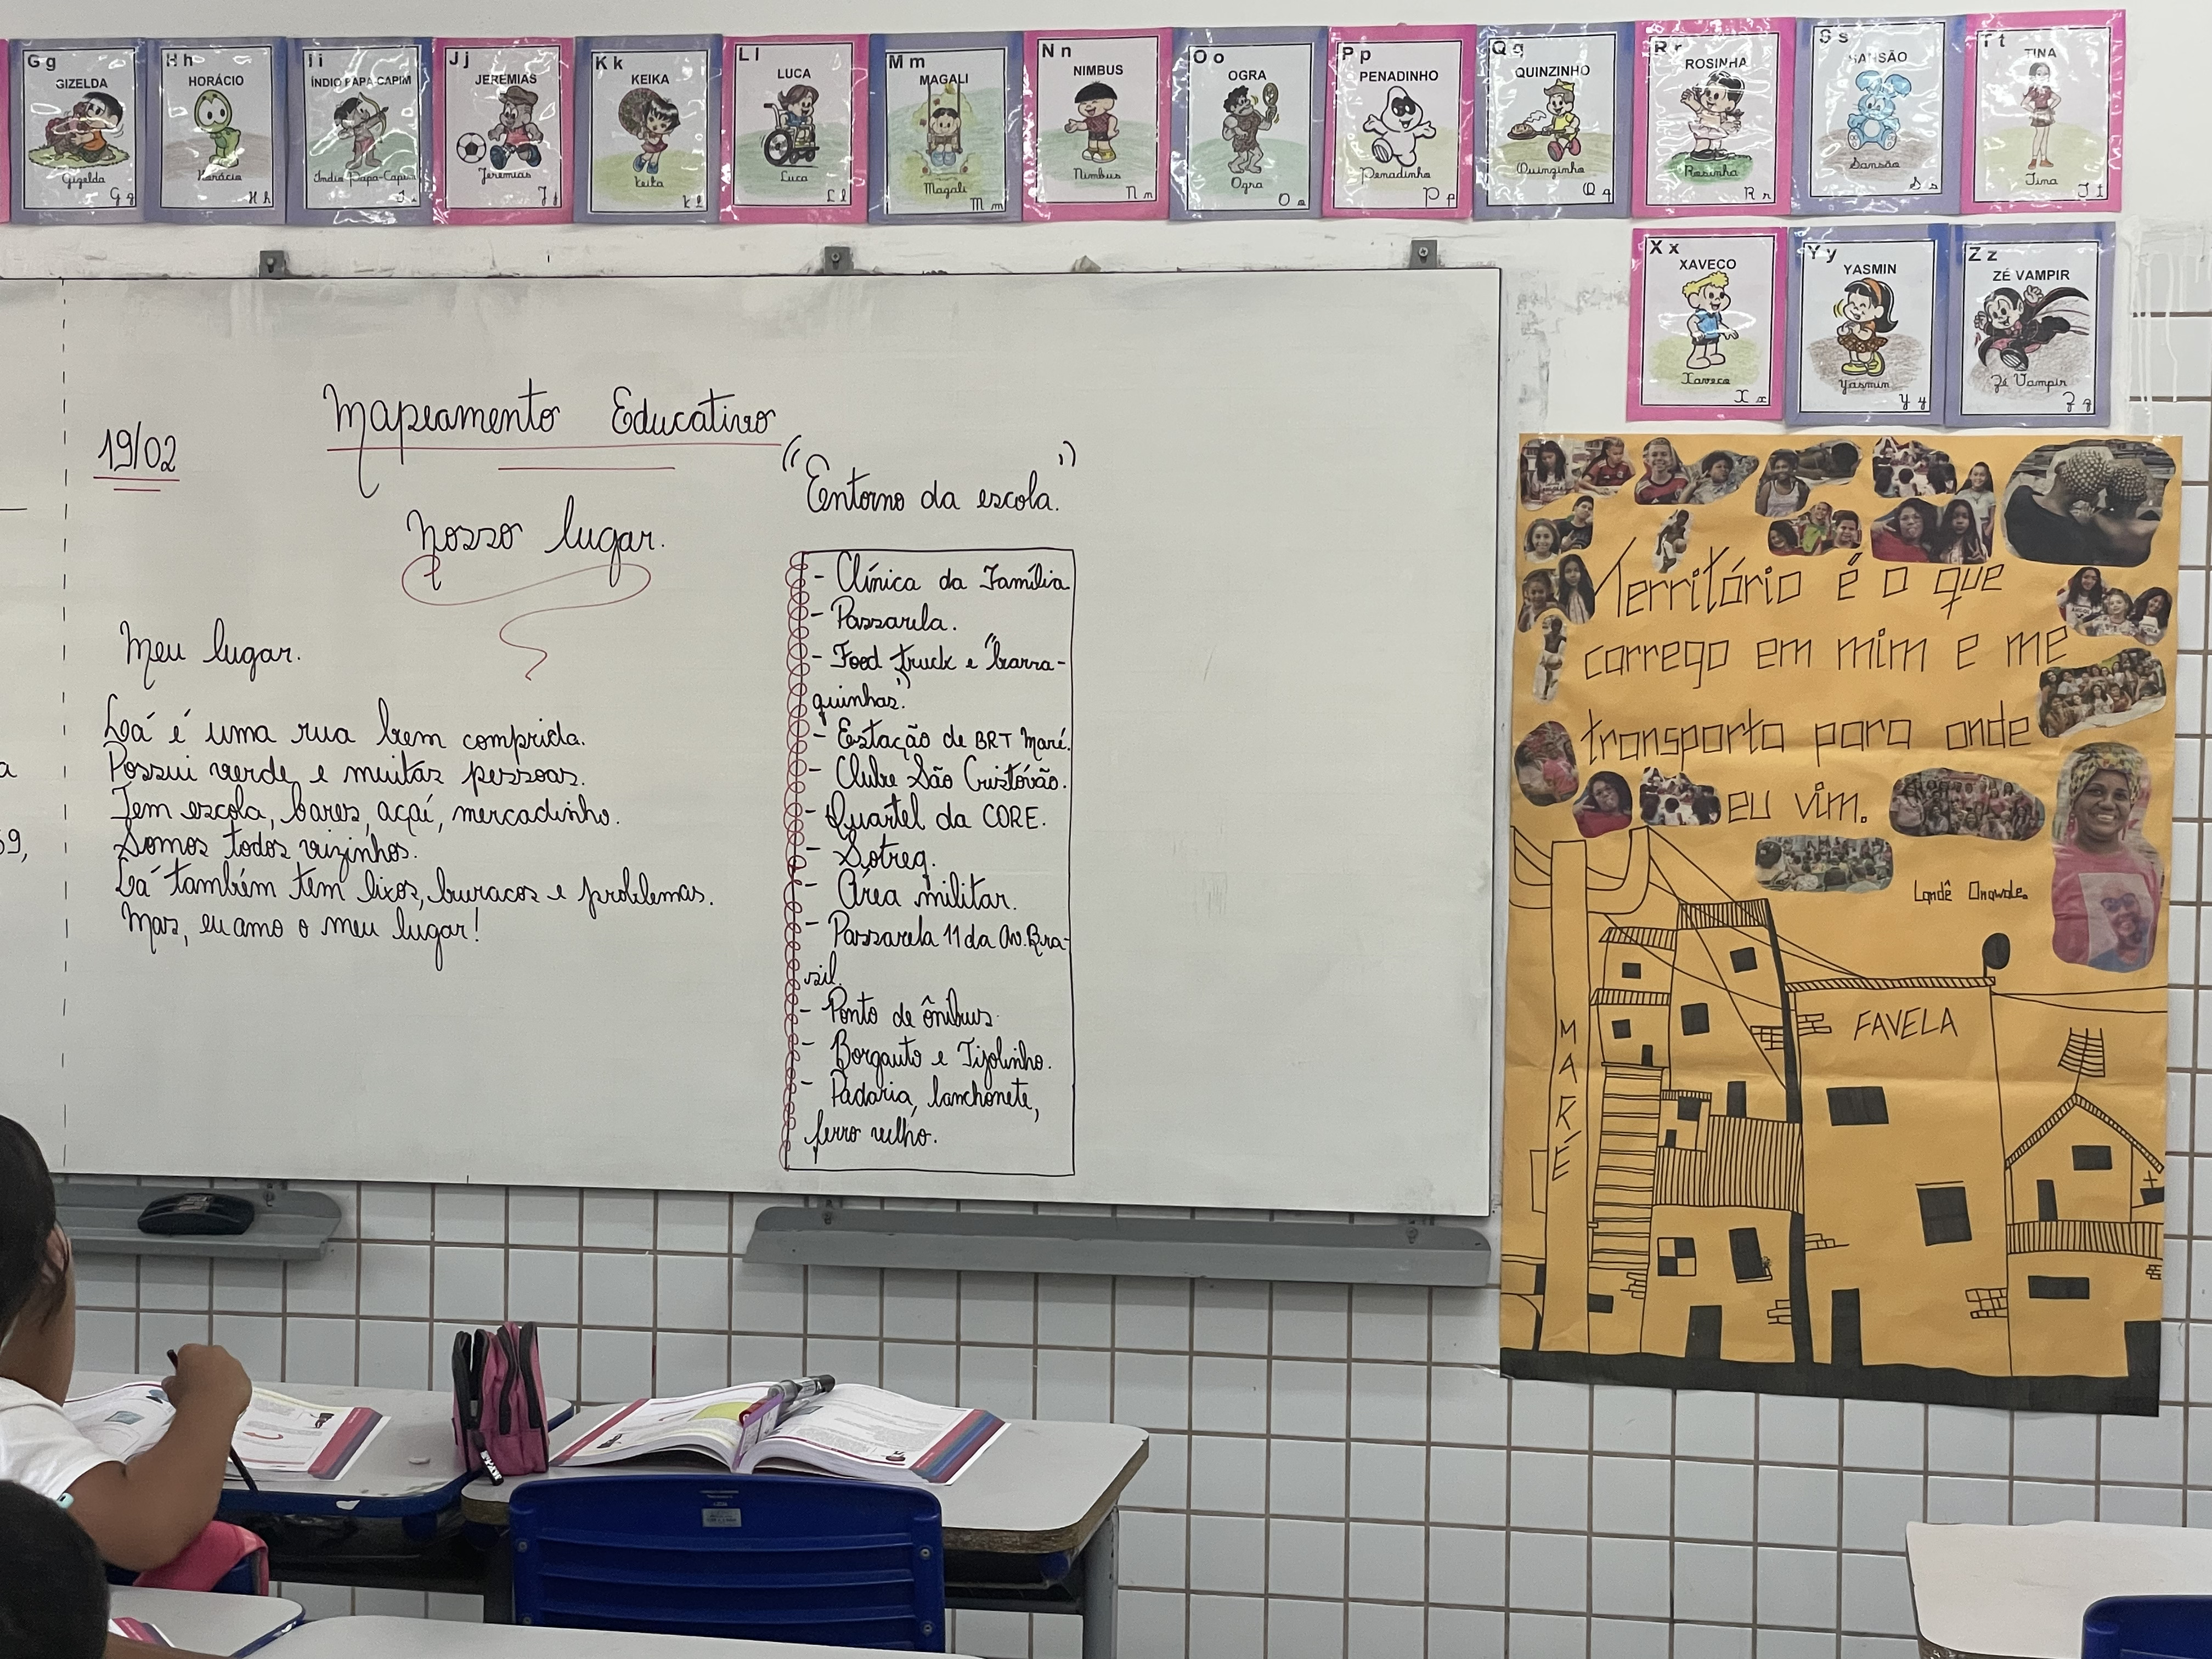 G g
GIZELDA
Gizelda
G g
H h
HORÁCIO
Horácio
H h
I i
ÍNDIO PAPA-CAPIM
Índio Papa-Capim
J j
JEREMIAS
Jeremias
J j
K k
KEIKA
Keika
K k
L l
LUCA
Luca
L l
M m
MAGALI
Magali
M m
N n
NIMBUS
Nimbus
N n
O o
OGRA
Ogra
O o
P p
PENADINHO
Penadinho
P p
Q q
QUINZINHO
Quinzinho
Q q
R r
ROSINHA
Rosinha
R r
S s
SANSÃO
Sansão
S s
T t
TINA
Tina
T t
X x
XAVECO
Xaveco
X x
Y y
YASMIN
Yasmin
Y y
Z z
ZÉ VAMPIR
Zé Vampir
Z z
a
59,
19/02
Mapeamento Educativo
Nosso lugar.
Meu lugar.
Lá é uma rua bem comprida.
Possui verde e muitas pessoas.
Tem escola, bares, açaí, mercadinho.
Somos todos vizinhos.
Lá também tem lixos, buracos e problemas.
Mas, eu amo o meu lugar!
"Entorno da escola."
- Clínica da Família
- Passarela.
- Food truck e "barra-
quinhas."
- Estação de BRT Maré.
- Clube São Cristóvão.
- Quartel da CORE.
- Sotreq.
- Área militar.
- Passarela 11 da Av. Bra-
sil.
- Ponto de ônibus.
- Borgauto e Tijolinho.
- Padaria, lanchonete,
ferro velho.
Território é o que
carrego em mim e me
transporta para onde
eu vim.
Landê Onawale.
MARÉ
FAVELA